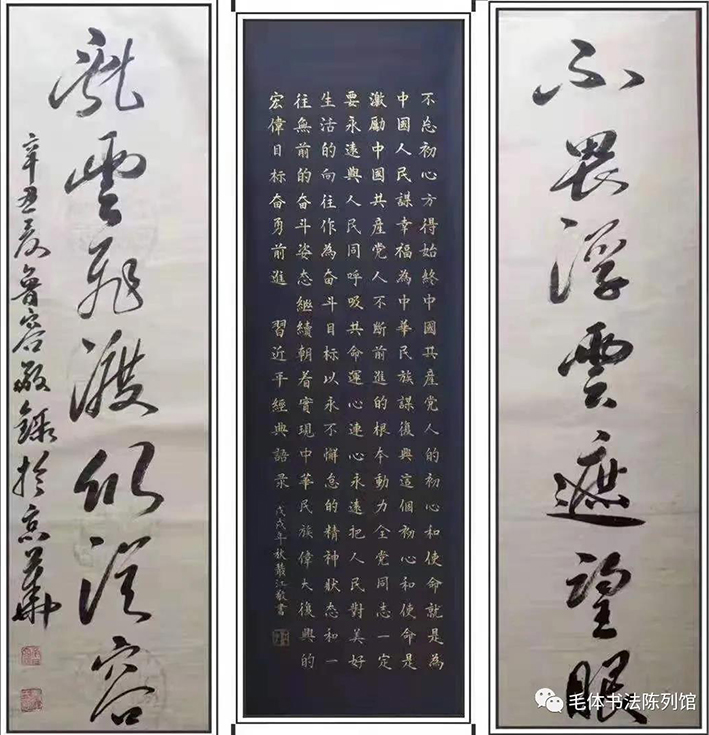 不畏浮雲遮望眼
不忘初心方得始終中國共產党人的初心和使命就是為
中國人民謀幸福為中華民族謀復興這個初心和使命是
激勵中國共產党人不斷前進的根本動力全党同志一定
要永遠與人民同呼吸共命運心連心永遠把人民對美好
生活的向往作為奋斗目标以永不懈怠的精神狀态和一
往無前的奋斗姿态繼續朝着實現中華民族偉大復興的
宏偉目标奋勇前進 習近平經典語录
戊戌年秋叢江敬書
亂雲飛渡仍從容
辛丑夏魯容敬錄於京華
毛体书法陈列馆